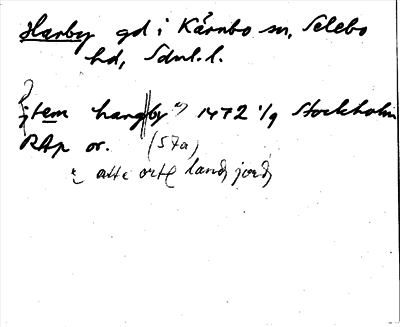 Harby gd i Kärnbo sn, Selebo
hd, Sdml.l.
item hargby 1472 1/9 Stockholm
RAp or. (57a)
atte ort land jord